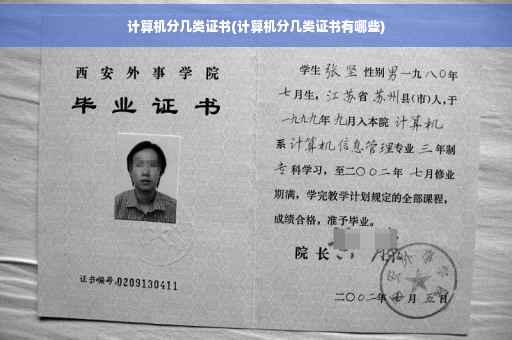 计算机分几类证书(计算机分几类证书有哪些)
西安外事学院
毕业证书
证书编号:0209130411
学生 张坚 性别 男 一九八〇年
七月生，江苏省 苏州县(市)人，于
一九九九年 九月入本院 计算机
系 计算机信息管理专业 三 年制
专科学习，至二〇〇二年 七月修业
期满，学完教学计划规定的全部课程，
成绩合格，准予毕业。
院长
二〇〇二年 月 五日